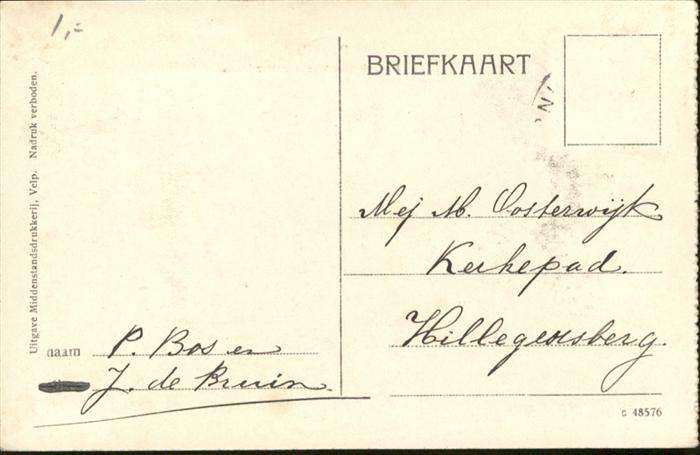 1,-
BRIEFKAART
N.
Uitgave Middenstandsdrukkerij, Velp. Nadruk verboden.
Mej M. Oosterwijk
Kerkepad.
Hillegersberg.
naam P. Bos en
J. de Bruin.
G 48576